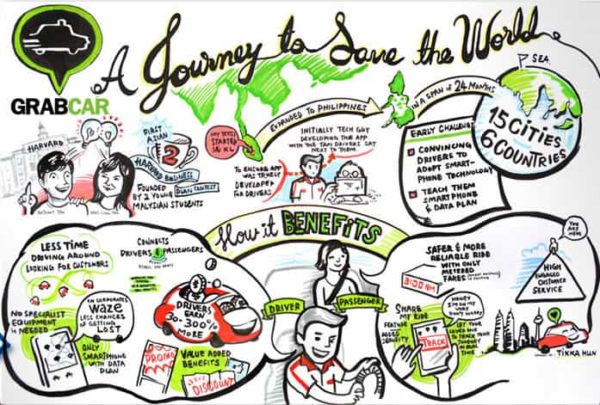 A Journey to Save the World
GRABCAR
SEA
EXPANDED TO PHILIPPINES
IN A SPAN OF 24 MONTHS
15 CITIES
6 COUNTRIES
HARVARD
FIRST
ASIAN
2
HARVARD
BUSINESS
PLAN CONTEST
FOUNDED
BY 2 YOUNG
MALAYSIAN STUDENTS
STARTED
IN KL
TO ENSURE APP
WAS TRULY
DEVELOPED
FOR DRIVERS
INITIALLY TECH GUY
DEVELOPING THE APP
WITH THE TAXI DRIVERS SAT
NEXT TO THEM
EARLY CHALLENGES
CONVINCING
DRIVERS TO
ADOPT SMART-
PHONE TECHNOLOGY
TEACH THEM
SMARTPHONE
& DATA PLAN
How it BENEFITS
DRIVER
PASSENGER
LESS TIME
DRIVING AROUND
LOOKING FOR CUSTOMERS
CONNECTS
DRIVERS & PASSENGERS
INCORPORATES
waze
LESS CHANCES
OF GETTING
LOST
NO SPECIALIST
EQUIPMENT
IS NEEDED
ONLY
SMARTPHONE
WITH DATA
PLAN
DRIVERS
EARN
30-300%
MORE
PROMO
VALUE ADDED
BENEFITS
DISCOUNT
SAFER & MORE
RELIABLE RIDE
WITH ONLY
METERED
FARES
3:00 AM
SHARE
MY RIDE
FEATURE
ADDED
SECURITY
TRACK
HONEY
I'M OK
DON'T WORRY!
LET YOUR
LOVED ONES
TRACK YOUR
JOURNEY IN
REAL TIME
YOU ARE
HERE
HIGH
ENHANCED
CUSTOMER
SERVICE
TIKKA HUN